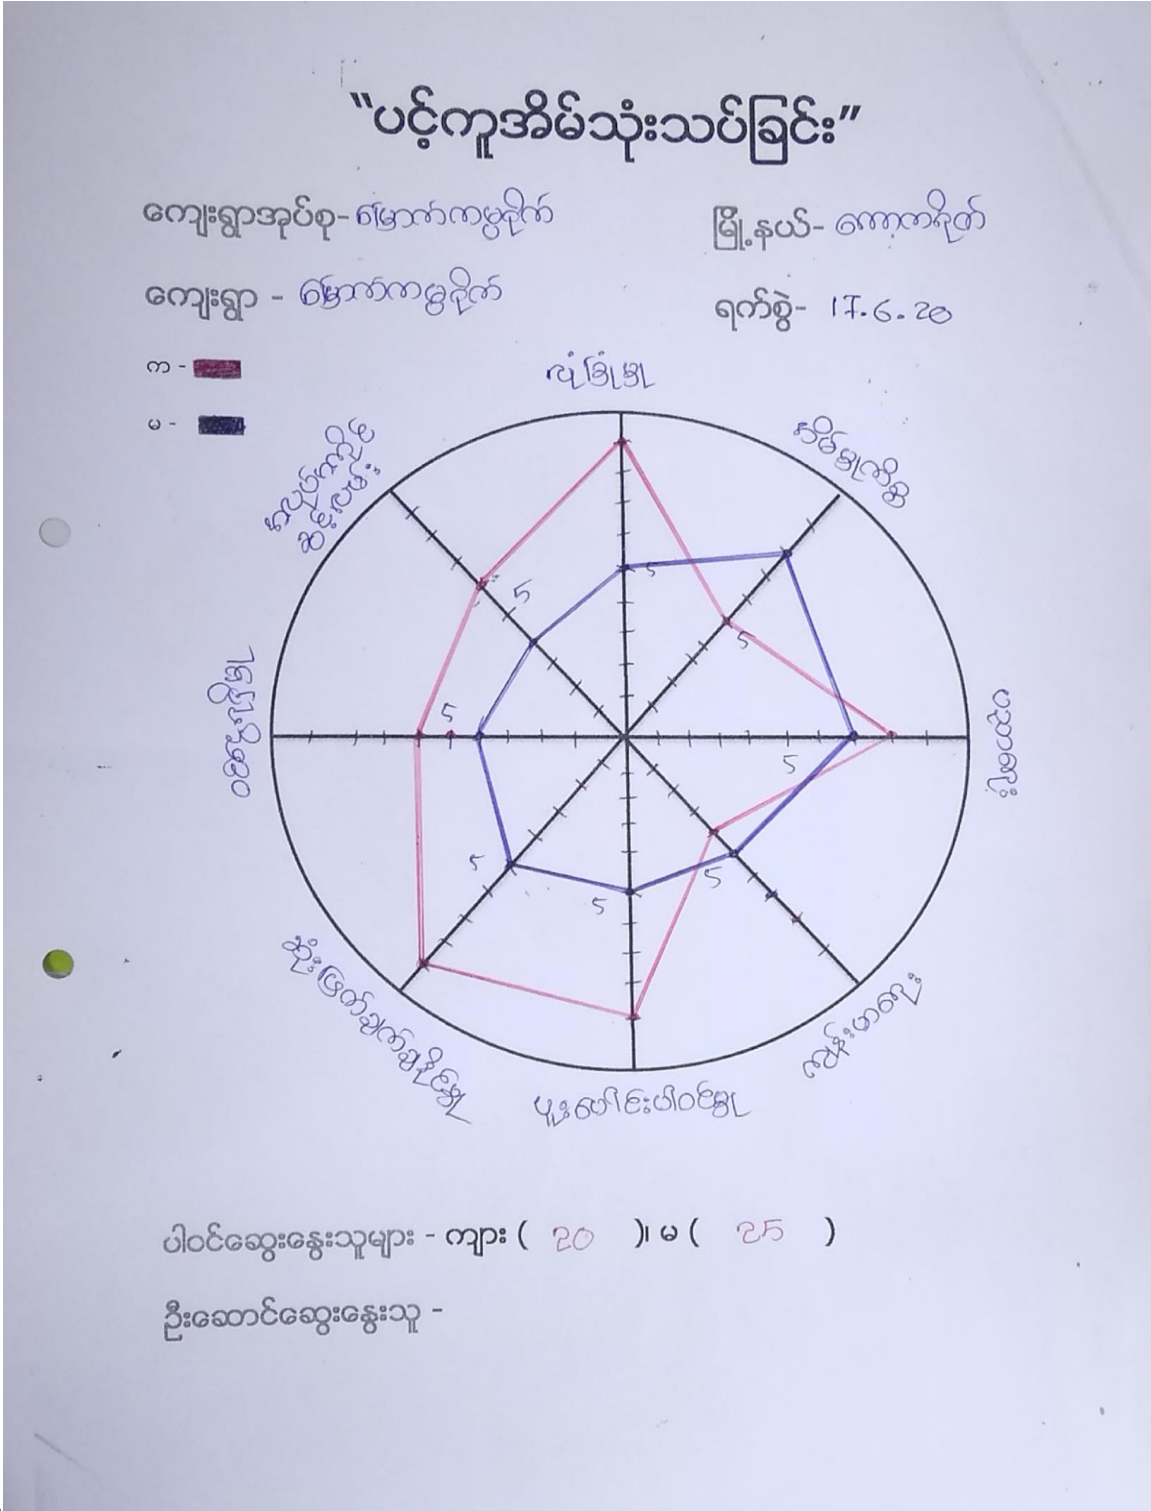 "ပင့်ကူအိမ်သုံးသပ်ခြင်း"
ကျေးရွာအုပ်စု- မြောက်ကမ္ပငိုက် မြို့နယ်- ကော့ကရိတ်
ကျေးရွာ - မြောက်ကမ္ပငိုက် ရက်စွဲ- 17.6.20
က -
မ -
လုံခြုံမှု
အိမ်မှုကိစ္စ
ဝင်ငွေ
ကျန်းမာရေး
ပူးပေါင်းပါဝင်မှု
ဆုံးဖြတ်ချက်ချနိုင်မှု
အလုပ်အကိုင်
5
5
5
5
5
5
5
5
ပါဝင်ဆွေးနွေးသူများ - ကျား ( 20 )၊ မ ( 25 )
ဦးဆောင်ဆွေးနွေးသူ -